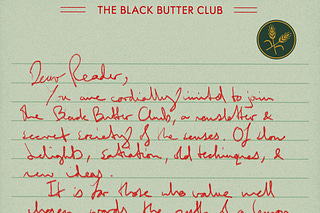 THE BLACK BUTTER CLUB
Dear Reader,
You are cordially invited to join
the Black Butter Club, a newsletter &
secret society of the senses. Of slow
delights, salivation, old techniques, &
new ideas.
It is for those who value well
chosen words, the